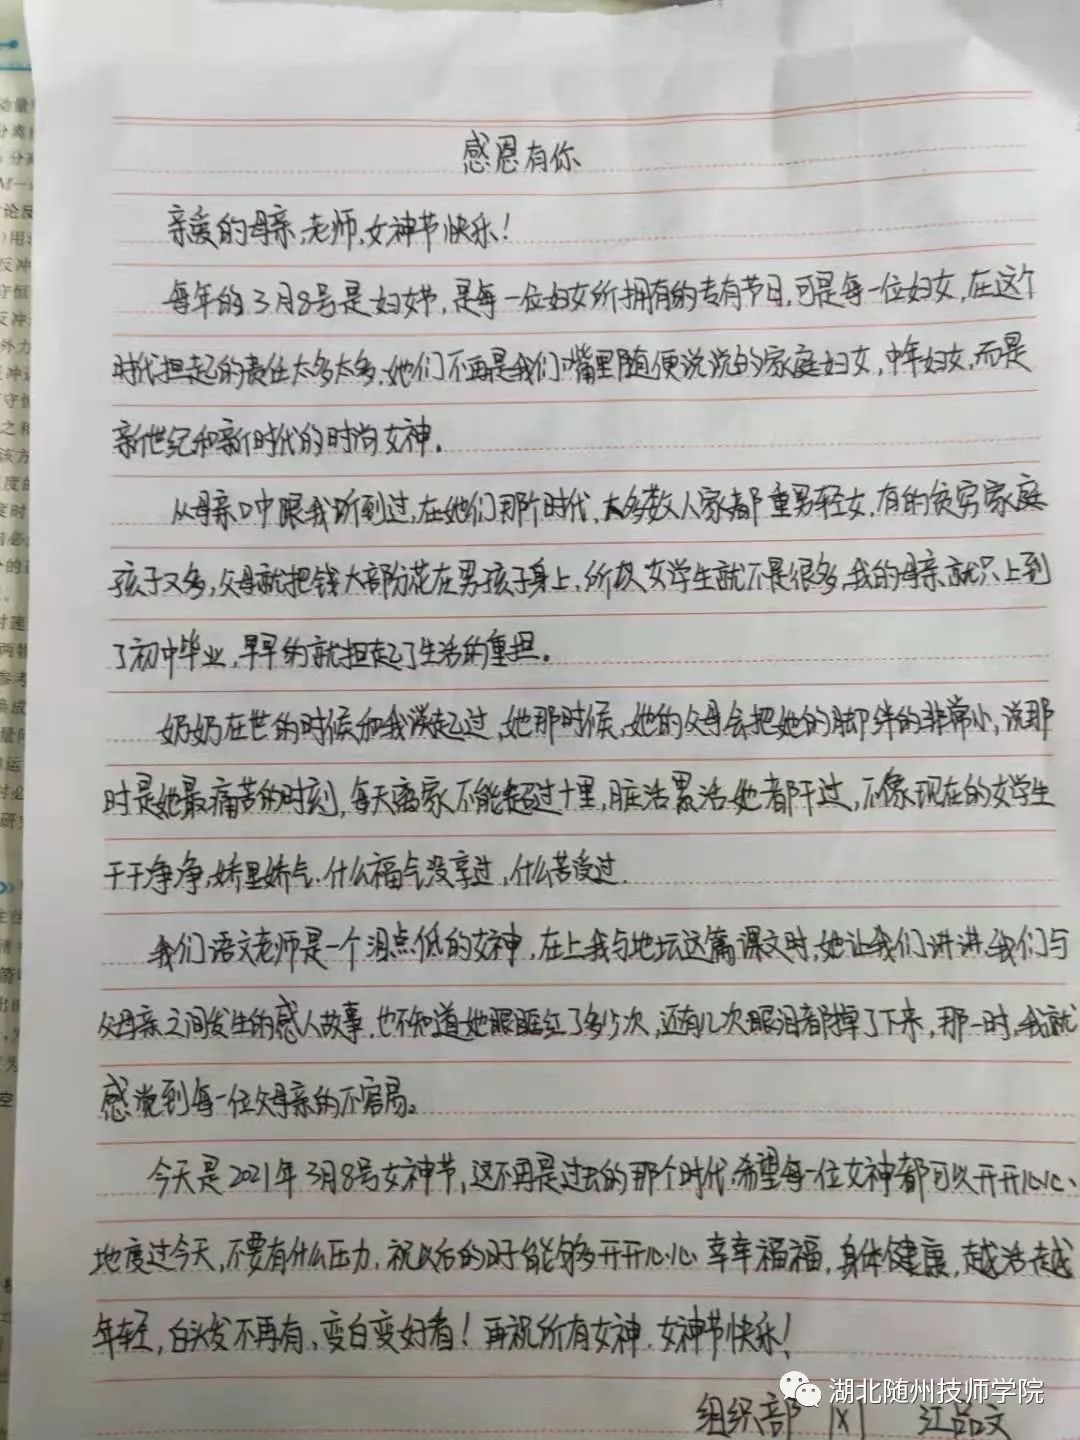 感恩有你
亲爱的母亲,老师,女神节快乐!
每年的3月8号是妇女节,是每一位妇女所拥有的专有节日,可是每一位妇女,在这个
时代担起的责任太多太多,她们不再是我们嘴里随便说说的家庭妇女,中年妇女,而是
新世纪和新时代的时尚女神。
从母亲口中跟我听到过,在她们那个时代,大多数人家都重男轻女,有的贫穷家庭
孩子又多,父母就把钱大部份花在男孩子身上,所以女学生就不是很多,我的母亲就只上到
了初中毕业,早早的就担起了生活的重担。
奶奶在世的时候和我谈起过,她那时候,她的父母会把她的脚绊的非常小,说那
时是她最痛苦的时刻,每天离家不能超过十里,脏活累活她都干过,不像现在的女学生
干干净净,娇里娇气,什么福气没享过,什么苦受过.
我们语文老师是一个泪点低的女神,在上我与地坛这篇课文时,她让我们讲讲,我们与
父母亲之间发生的感人故事,也不知道她眼眶红了多少次,还有几次眼泪都掉了下来,那一时,我就
感觉到每一位父母亲的不容易。
今天是2021年3月8号女神节,这不再是过去的那个时代,希望每一位女神都可以开开心心
地度过今天,不要有什么压力,祝以后的日子能够开开心心 幸幸福福,身体健康,越活越
年轻,白头发不再有,变白变好看!再祝所有女神,女神节快乐!
组织部 江品文
湖北随州技师学院